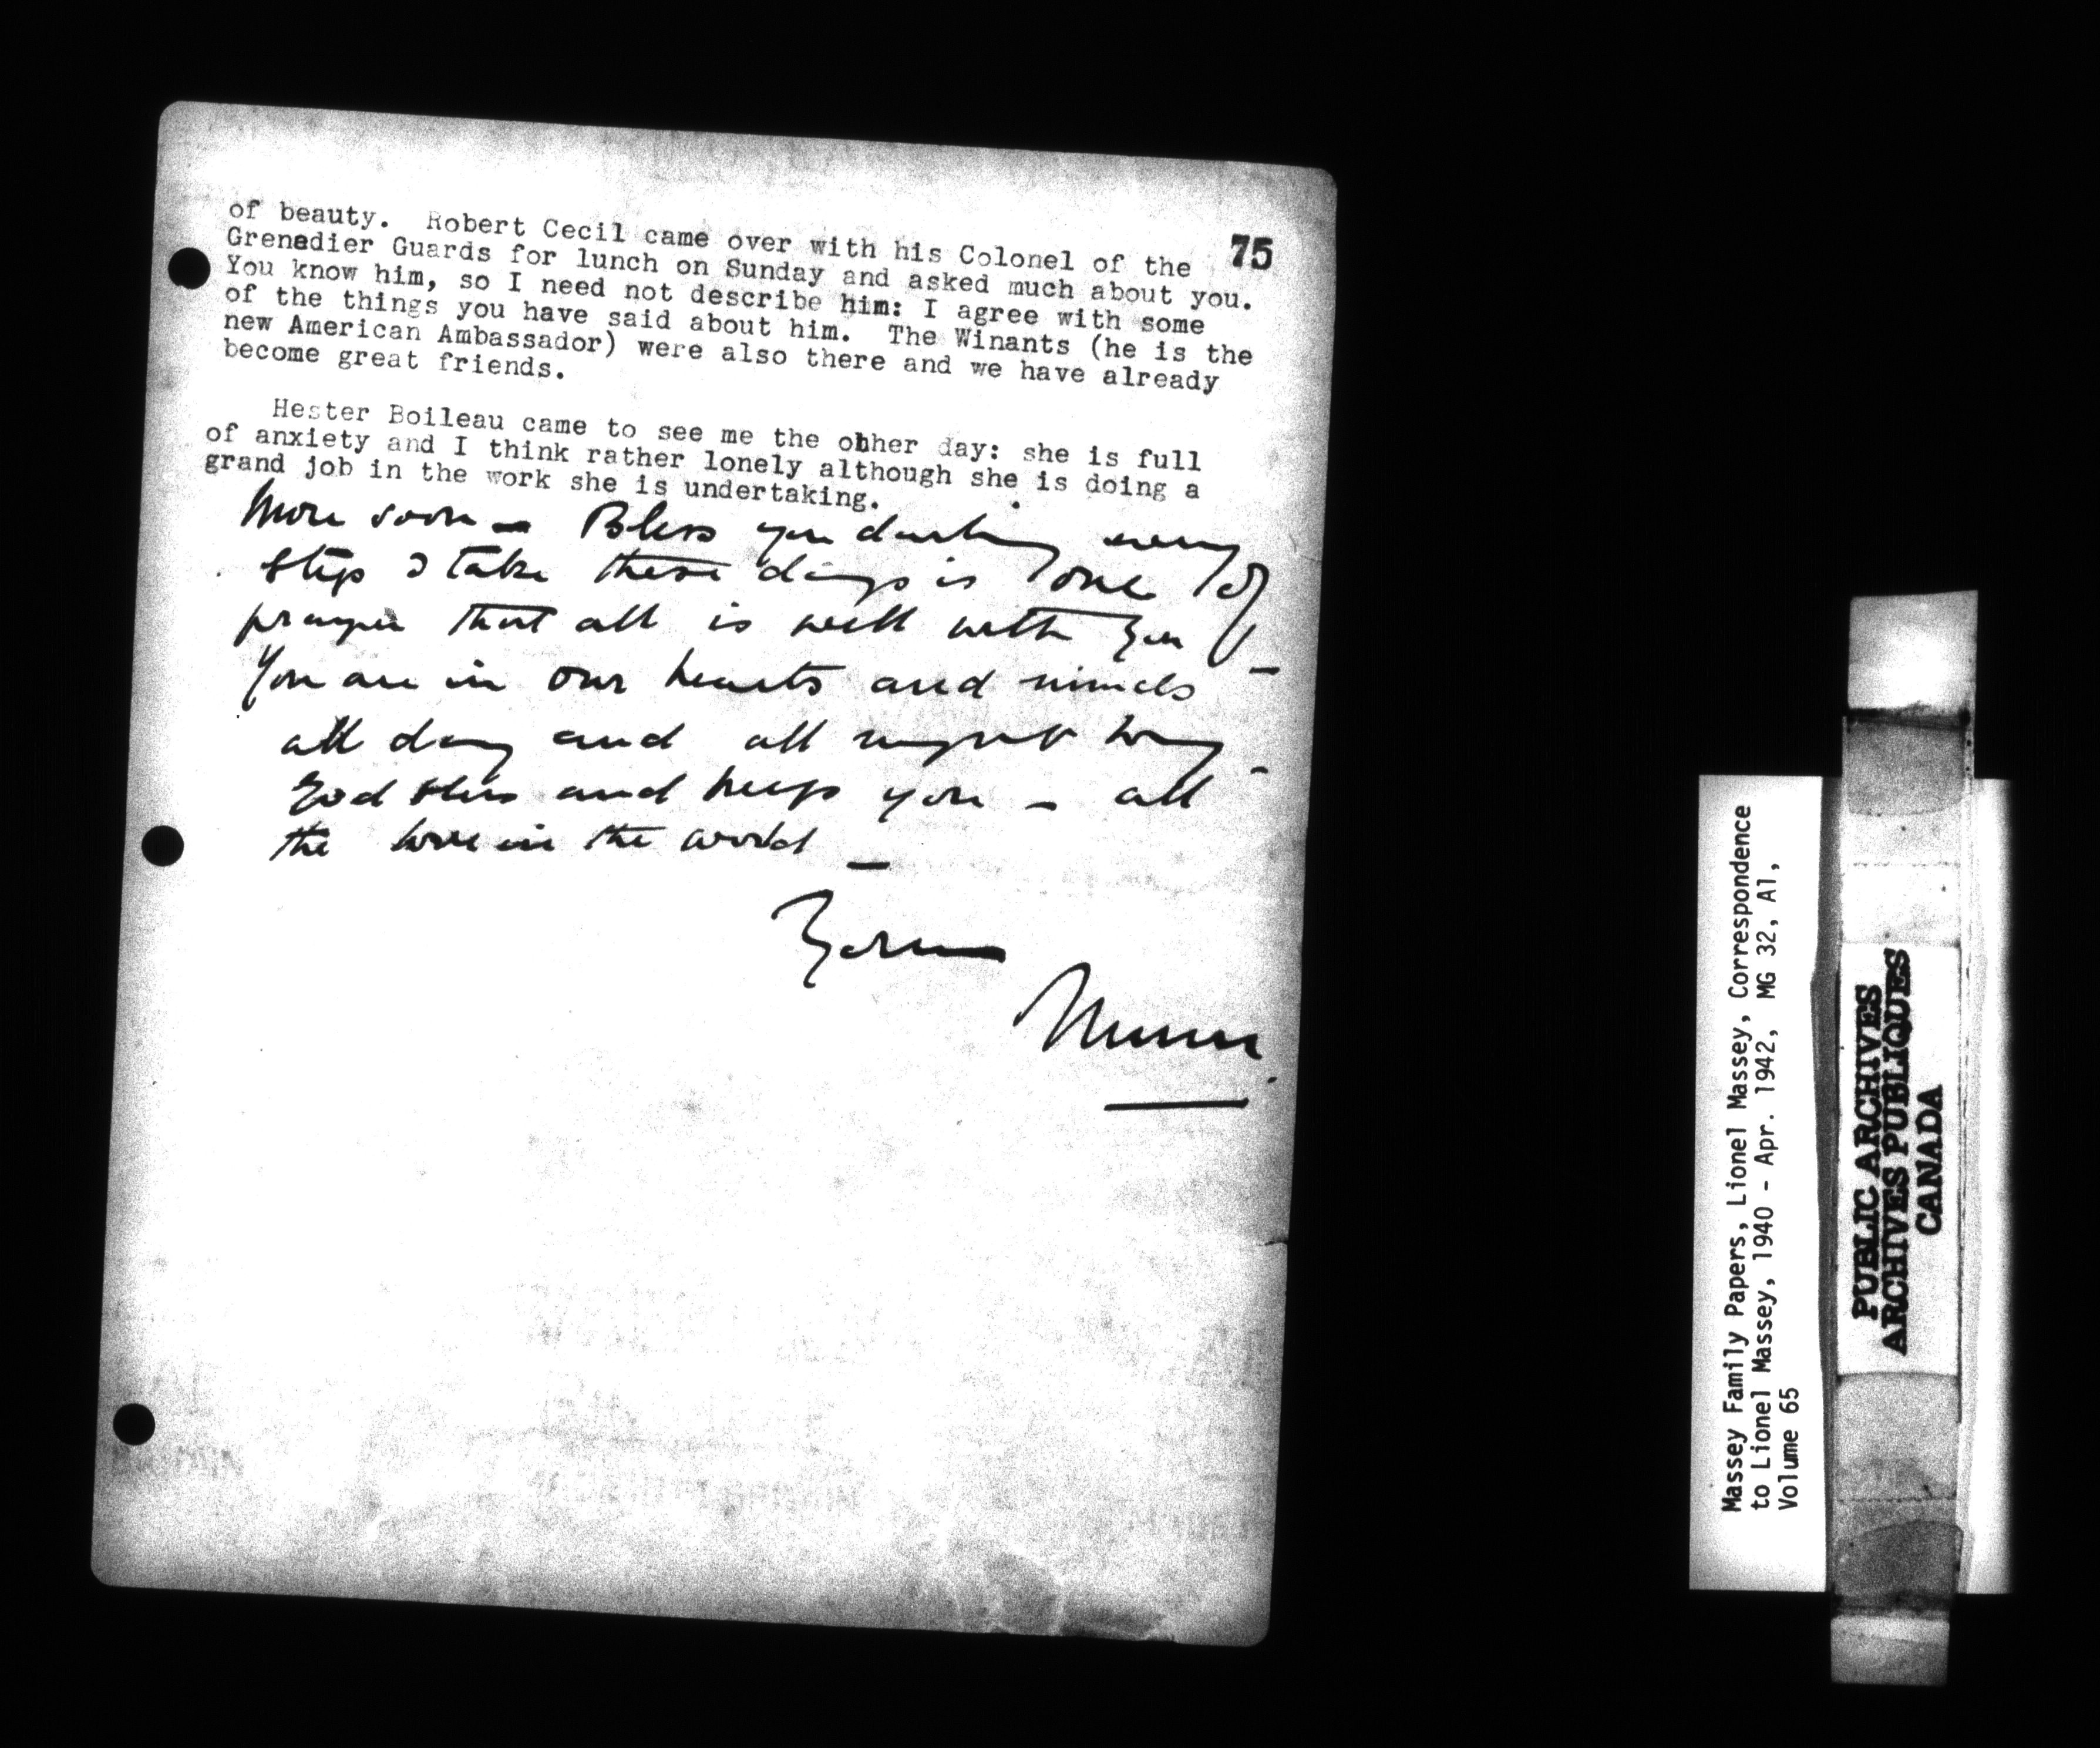 75
of beauty. Robert Cecil came over with his Colonel of the
Grenadier Guards for lunch on Sunday and asked much about you.
You know him, so I need not describe him: I agree with some
of the things you have said about him. The Winants (he is the
new American Ambassador) were also there and we have already
become great friends.
Hester Boileau came to see me the other day: she is full
of anxiety and I think rather lonely although she is doing a
grand job in the work she is undertaking.
More soon - Bless you darling every
step I take these days is one of
prayer that all is well with you -
You are in our hearts and minds
all day and all night long -
God bless and keep you - all
the love in the world -
Yours
Mum
Massey Family Papers, Lionel Massey, Correspondence
to Lionel Massey, 1940 - Apr. 1942, MG 32, A1,
Volume 65
PUBLIC ARCHIVES
ARCHIVES PUBLIQUES
CANADA